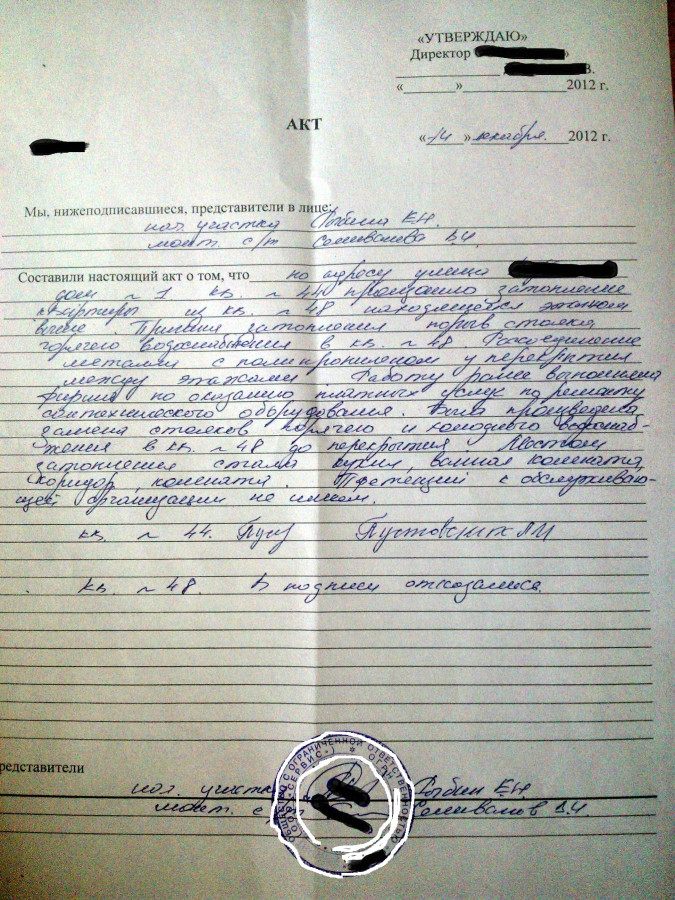 «УТВЕРЖДАЮ»
Директор
«________»________________2012 г.
АКТ
«14» декабря 2012 г.
Мы, нижеподписавшиеся, представители в лице:
нач. участка Рыбина Е.Н.
монт. с/т Селиванова В.Ч.
Составили настоящий акт о том, что по адресу улица
дом № 1 кв. № 44 произошло затопление
квартиры из кв. № 48 находящейся этажом
выше. Причина затопления порыв стояка
горячего водоснабжения в кв. № 48 Рассоединение
металла с полипропиленом у перекрытия
между этажами. Работу ранее выполняла
фирма по оказанию платных услуг по ремонту
сантехнического оборудования. Была произведена
замена стояков горячего и холодного водоснаб-
жения в кв. № 48 до перекрытия. Местом
затопления стали кухня, ванная комната,
коридор, комната. Претензий к обслуживаю-
щей организации не имеем.
кв. № 44. Пуст
кв. № 48. В подписи отказались.
редставители
нач. участка Рыбин Е.Н.
монт. с Селиванов В.Ч.
ОБЩЕСТВО С ОГРАНИЧЕННОЙ ОТВЕТСТВЕННОСТЬЮ * ОГРН
СЕРВИС-